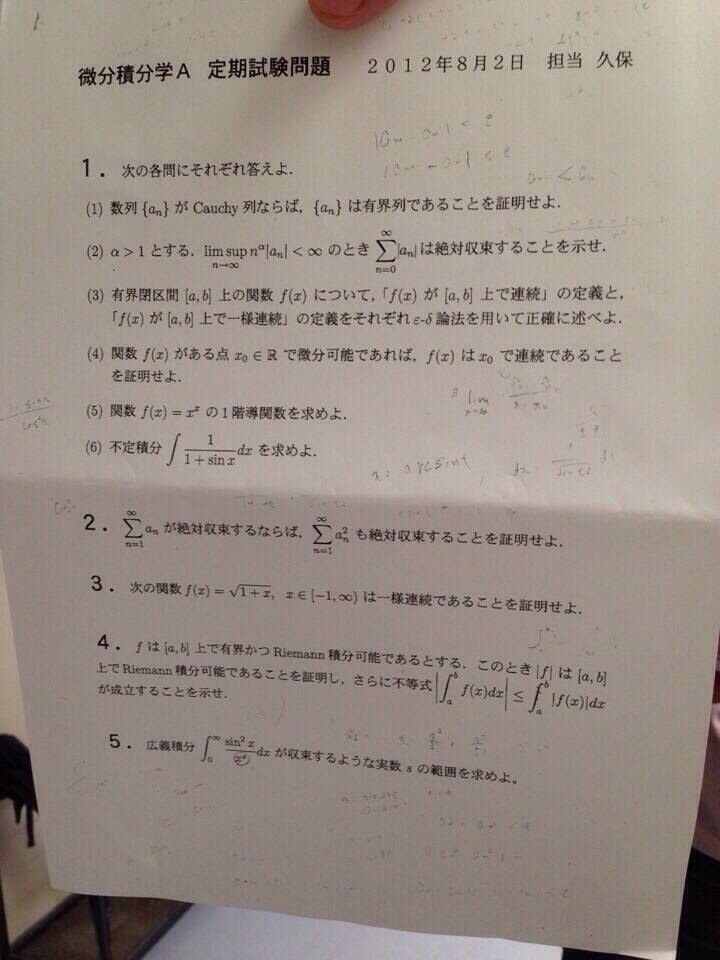 微分積分学A 定期試験問題 2012年8月2日 担当 久保
1. 次の各問にそれぞれ答えよ.
(1) 数列 {aₙ} が Cauchy 列ならば, {aₙ} は有界列であることを証明せよ.
(2) α > 1 とする. lim sup_{n→∞} n^α|aₙ| < ∞ のとき ∑_{n=0}^{∞}|aₙ| は絶対収束することを示せ.
(3) 有界閉区間 [a, b] 上の関数 f(x) について,「f(x) が [a, b] 上で連続」の定義と,
「f(x) が [a, b] 上で一様連続」の定義をそれぞれ ε-δ 論法を用いて正確に述べよ.
(4) 関数 f(x) がある点 x₀ ∈ ℝ で微分可能であれば, f(x) は x₀ で連続であること
を証明せよ.
(5) 関数 f(x) = x^x の1階導関数を求めよ.
(6) 不定積分 ∫ 1/(1 + sin x) dx を求めよ.
x = arcsin t
2. ∑_{n=1}^{∞} aₙ が絶対収束するならば, ∑_{n=1}^{∞} aₙ² も絶対収束することを証明せよ.
3. 次の関数 f(x) = √(1 + x), x ∈ [−1, ∞) は一様連続であることを証明せよ.
4. f は [a, b] 上で有界かつ Riemann 積分可能であるとする. このとき |f| は [a, b]
上で Riemann 積分可能であることを証明し, さらに不等式 |∫_a^b f(x)dx| ≤ ∫_a^b |f(x)|dx
が成立することを示せ.
5. 広義積分 ∫_0^∞ sin² x / x^s dx が収束するような実数 s の範囲を求めよ。